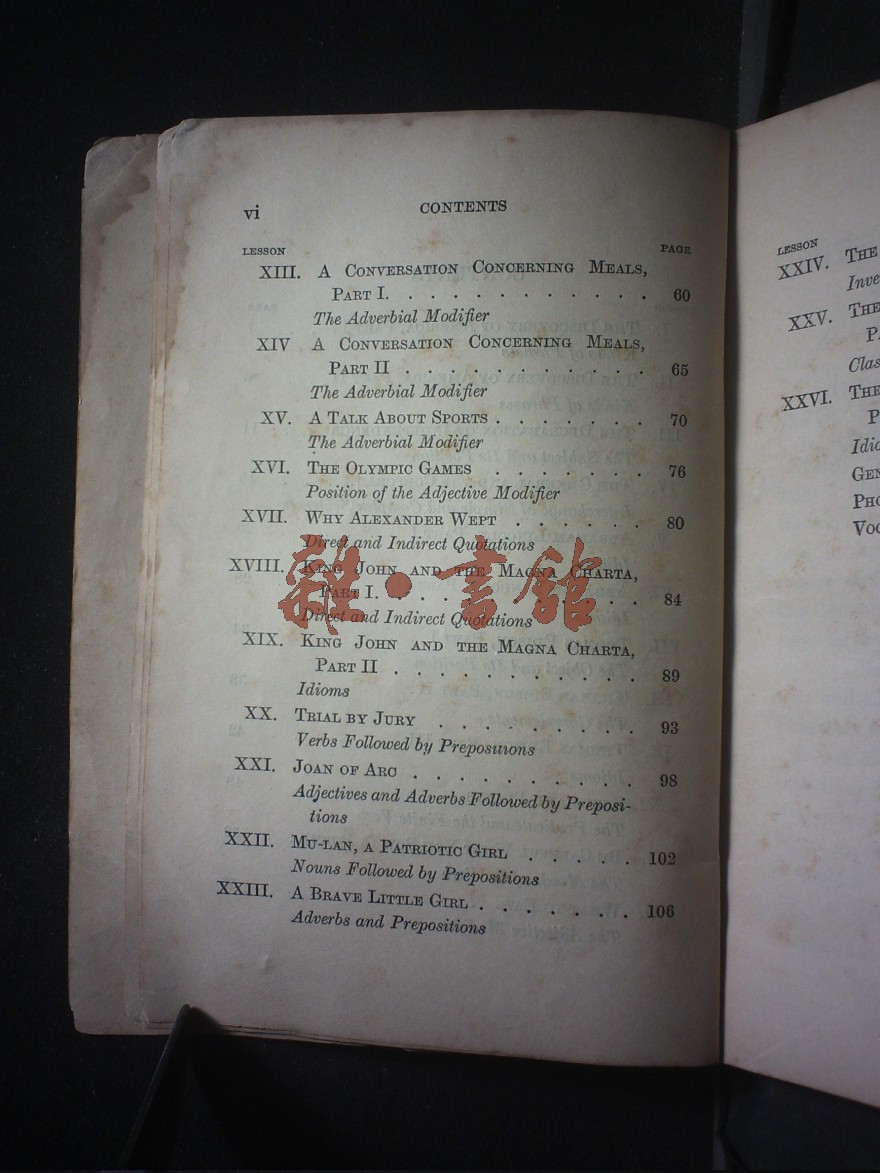 vi
CONTENTS
LESSON PAGE
XIII. A Conversation Concerning Meals,
Part I. . . . . . . . . . . . 60
The Adverbial Modifier
XIV A Conversation Concerning Meals,
Part II . . . . . . . . . . . 65
The Adverbial Modifier
XV. A Talk About Sports . . . . . . . 70
The Adverbial Modifier
XVI. The Olympic Games . . . . . . . 76
Position of the Adjective Modifier
XVII. Why Alexander Wept . . . . . . 80
Direct and Indirect Quotations
XVIII. King John and the Magna Charta,
Part I. . . . . . . . . . . . 84
Direct and Indirect Quotations
XIX. King John and the Magna Charta,
Part II . . . . . . . . . . . 89
Idioms
XX. Trial by Jury . . . . . . . . . 93
Verbs Followed by Prepositions
XXI. Joan of Arc . . . . . . . . . . 98
Adjectives and Adverbs Followed by Preposi-
tions
XXII. Mu-lan, a Patriotic Girl . . . . . 102
Nouns Followed by Prepositions
XXIII. A Brave Little Girl . . . . . . . 106
Adverbs and Prepositions
雜·書館
LESSON
XXIV. The
XXV. The
XXVI. The